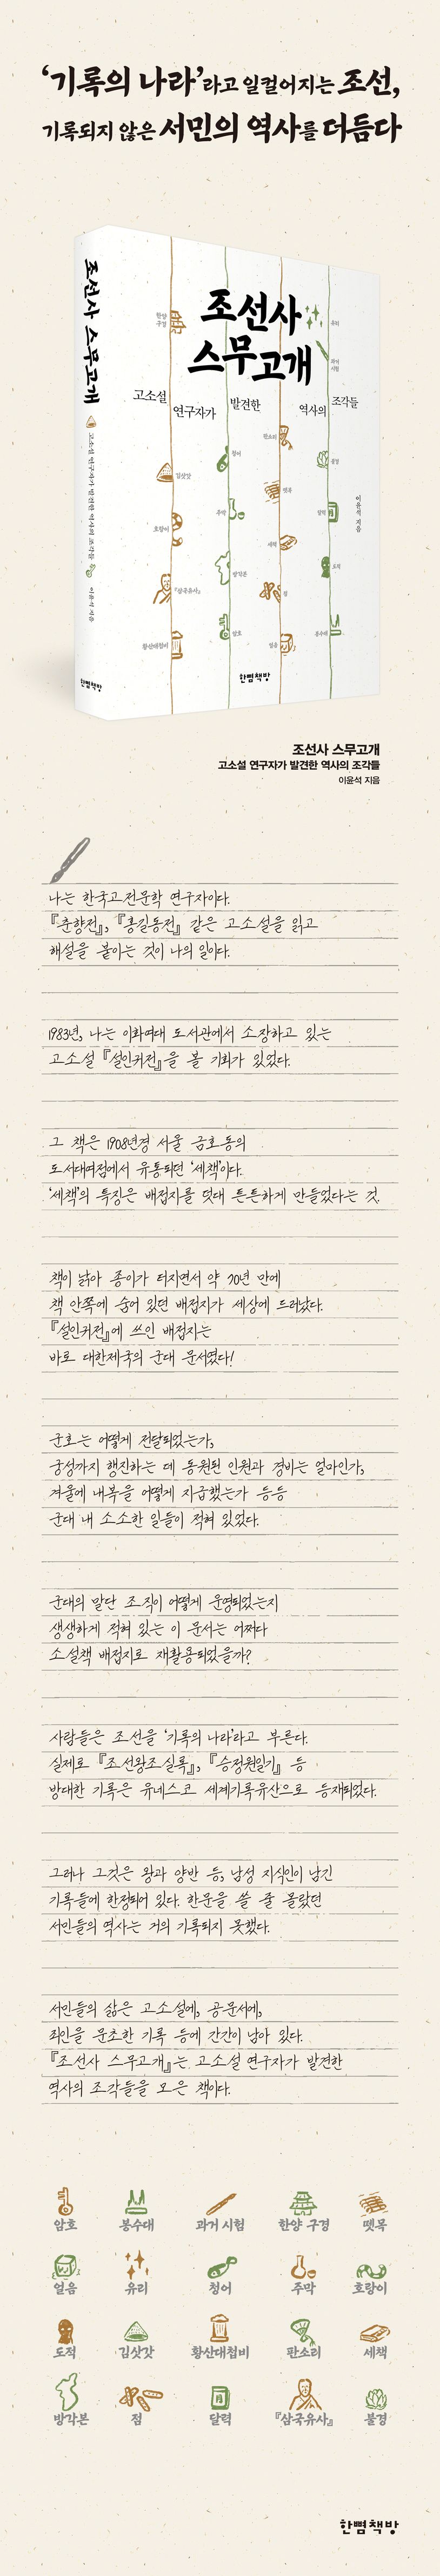 ‘기록의 나라’라고 일컬어지는 조선,
기록되지 않은 서민의 역사를 더듬다
조선사 스무고개
고소설 연구자가 발견한 역사의 조각들
이윤석 지음
한뼘책방
조선사
스무고개
고소설 연구자가 발견한 역사의 조각들
한양 구경
유리
과거 시험
판소리
청어
불경
김삿갓
뗏목
주막
달력
호랑이
세책
방각본
도적
『삼국유사』
점
암호
봉수대
황산대첩비
얼음
이윤석 지음
한뼘책방
조선사 스무고개
고소설 연구자가 발견한 역사의 조각들
이윤석 지음
나는 한국고전문학 연구자이다.
『춘향전』, 『홍길동전』 같은 고소설을 읽고
해설을 붙이는 것이 나의 일이다.
1983년, 나는 이화여대 도서관에서 소장하고 있는
고소설 『설인귀전』을 볼 기회가 있었다.
그 책은 1908년경 서울 금호동의
도서대여점에서 유통되던 ‘세책’이다.
‘세책’의 특징은 배접지를 덧대 튼튼하게 만들었다는 것.
책이 낡아 종이가 터지면서 약 70년 만에
책 안쪽에 숨어 있던 배접지가 세상에 드러났다.
『설인귀전』에 쓰인 배접지는
바로 대한제국의 군대 문서였다!
군호는 어떻게 전달되었는가,
궁성까지 행진하는 데 동원된 인원과 경비는 얼마인가,
겨울에 내복을 어떻게 지급했는가 등등
군대 내 소소한 일들이 적혀 있었다.
군대의 말단 조직이 어떻게 운영되었는지
생생하게 적혀 있는 이 문서는 어쩌다
소설책 배접지로 재활용되었을까?
사람들은 조선을 ‘기록의 나라’라고 부른다.
실제로 『조선왕조실록』, 『승정원일기』 등
방대한 기록은 유네스코 세계기록유산으로 등재되었다.
그러나 그것은 왕과 양반 등, 남성 지식인이 남긴
기록들에 한정되어 있다. 한문을 쓸 줄 몰랐던
서민들의 역사는 거의 기록되지 못했다.
서민들의 삶은 고소설에, 공문서에,
죄인을 문초한 기록 등에 간간이 남아 있다.
『조선사 스무고개』는 고소설 연구자가 발견한
역사의 조각들을 모은 책이다.
암호 봉수대 과거 시험 한양 구경 뗏목
얼음 유리 청어 주막 호랑이
도적 김삿갓 황산대첩비 판소리 세책
방각본 점 달력 『삼국유사』 불경
한뼘책방